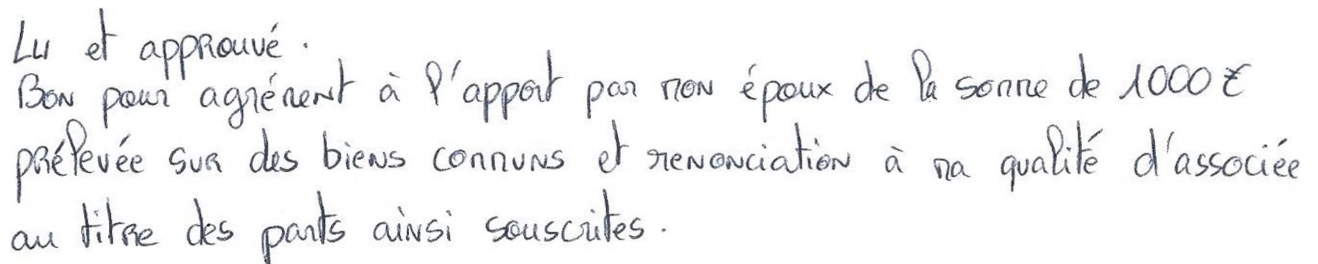 Lu et approuvé.
Bon pour agrément à l'apport par mon époux de la somme de 1000 €
prélevée sur des biens communs et renonciation à ma qualité d'associée
au titre des parts ainsi souscrites.